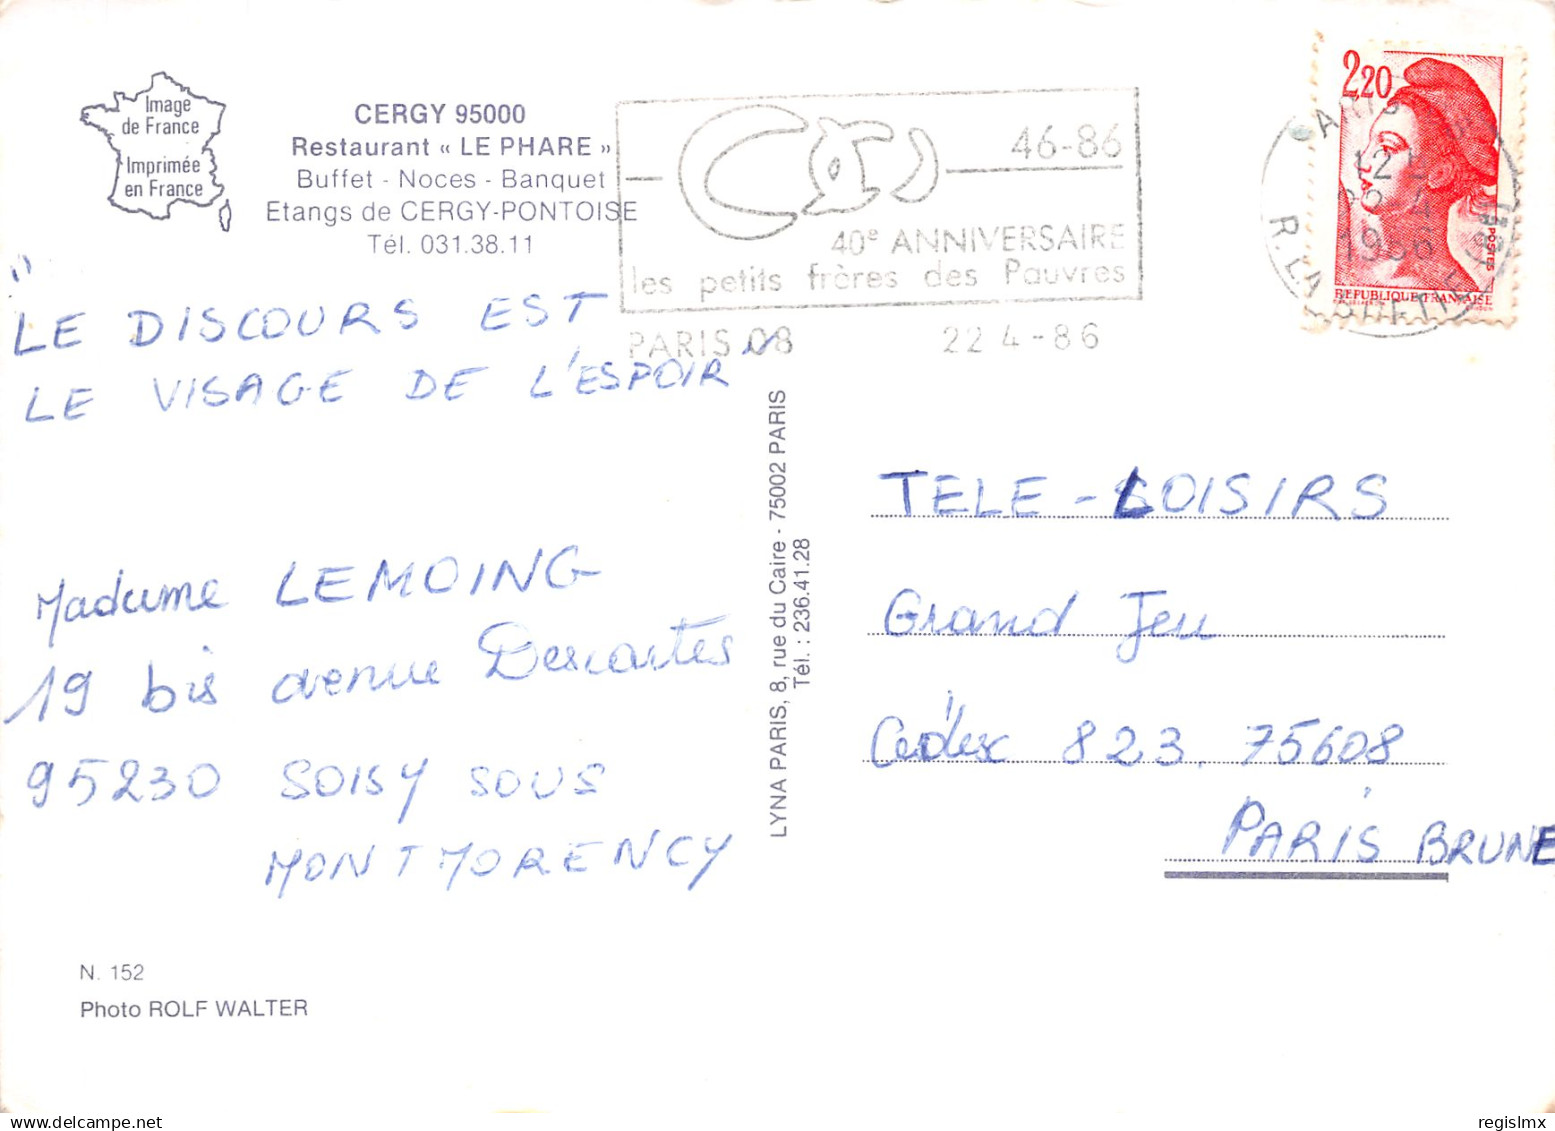 Image
de France
Imprimée
en France
CERGY 95000
Restaurant « LE PHARE »
Buffet - Noces - Banquet
Etangs de CERGY-PONTOISE
Tél. 031.38.11
46-86
40e ANNIVERSAIRE
les petits frères des Pauvres
PARIS 08 22 4-86
2,20
POSTES
REPUBLIQUE FRANÇAISE
PARIS
1986
" LE DISCOURS EST
LE VISAGE DE L'ESPOIR "
Madame LEMOING
19 bis avenue Descartes
95230 SOISY SOUS
MONTMORENCY
LYNA PARIS, 8, rue du Caire - 75002 PARIS
Tél. : 236.41.28
TELE-LOISIRS
Grand Jeu
Cédex 823. 75608
PARIS BRUNE
N. 152
Photo ROLF WALTER
regislmx